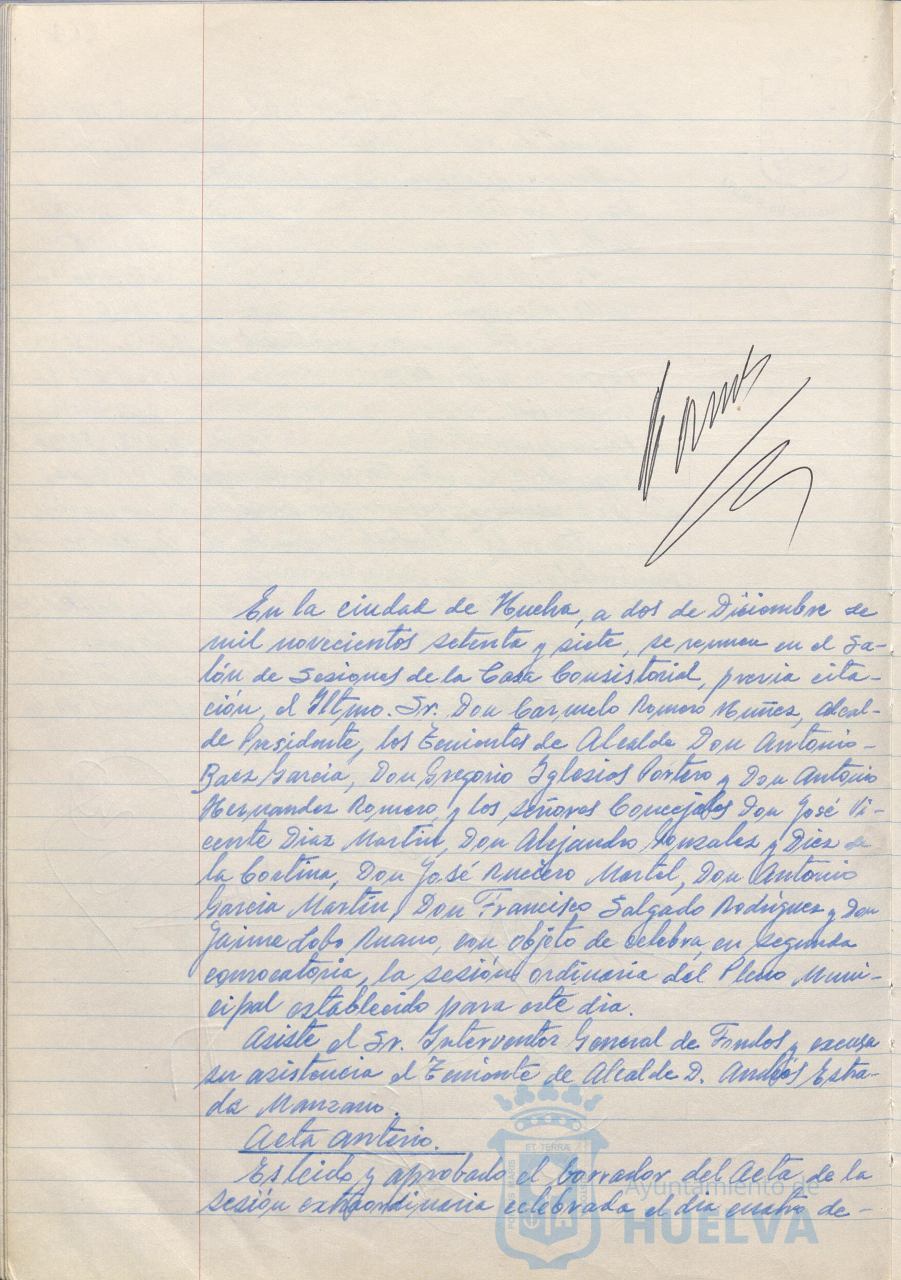 En la ciudad de Huelva, a dos de Diciembre de
mil novecientos setenta y siete, se reunen en el Sa-
lón de Sesiones de la Casa Consistorial, previa cita-
ción, el Iltmo. Sr. Don Carmelo Romero Nuñez, Alcal-
de Presidente, los Tenientes de Alcalde Don Antonio
Baez Garcia, Don Gregorio Iglesias Portero y Don Antonio
Hernandez Romero, y los señores Concejales Don José Vi-
cente Diaz Martin, Don Alejandro Gonzalez y Diez de
la Cortina, Don José Ruciero Martel, Don Antonio
Garcia Martín, Don Francisco Salgado Rodriguez y Don
Jaime Lobo Ruano, con objeto de celebra, en segunda
convocatoria, la sesión ordinaria del Pleno Muni-
cipal establecido para este dia.
Asiste el Sr. Interventor General de Fondos y excusa
su asistencia el Teniente de Alcalde D. Andrés Estra-
da Manzano.
Acta anterio.
Es leido y aprobado el borrador del Acta de la
sesión extraordinaria celebrada el día cuatro de-
ET TERRÆ
Ayuntamiento de
HUELVA